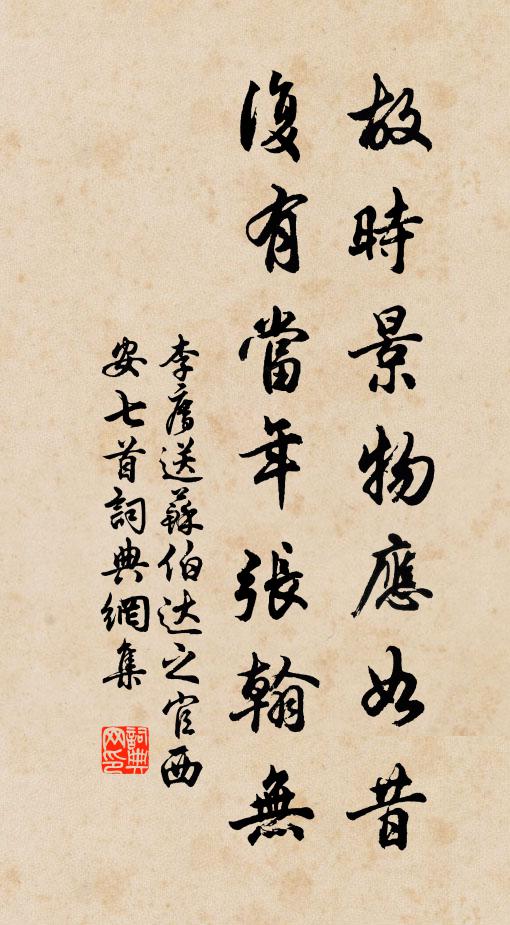 故時景物應如昔
復有當年張翰無
李廌送蘇伯达之官西
安七首詞典網集
詞典网印